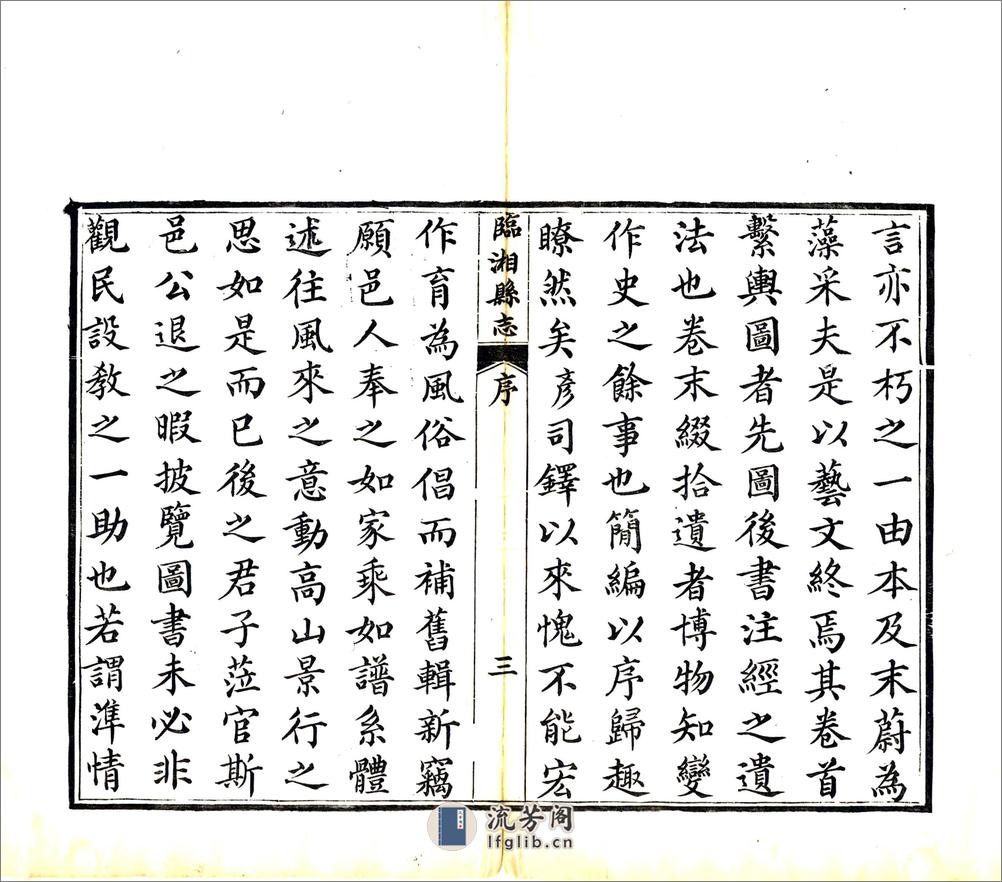 言亦不朽之一由本及末蔚為
藻采夫是以藝文終焉其卷首
繫輿圖者先圖後書注經之遺
法也卷末綴拾遺者博物知變
作史之餘事也簡編以序歸趣
瞭然矣彦司鐸以來愧不能宏
臨湘縣志
序
三
作育為風俗倡而補舊輯新竊
願邑人奉之如家乘如譜系體
述往風來之意動高山景行之
思如是而已後之君子蒞官斯
邑公退之暇披覽圖書未必非
觀民設教之一助也若謂準情
流芳阁
lfglib.cn